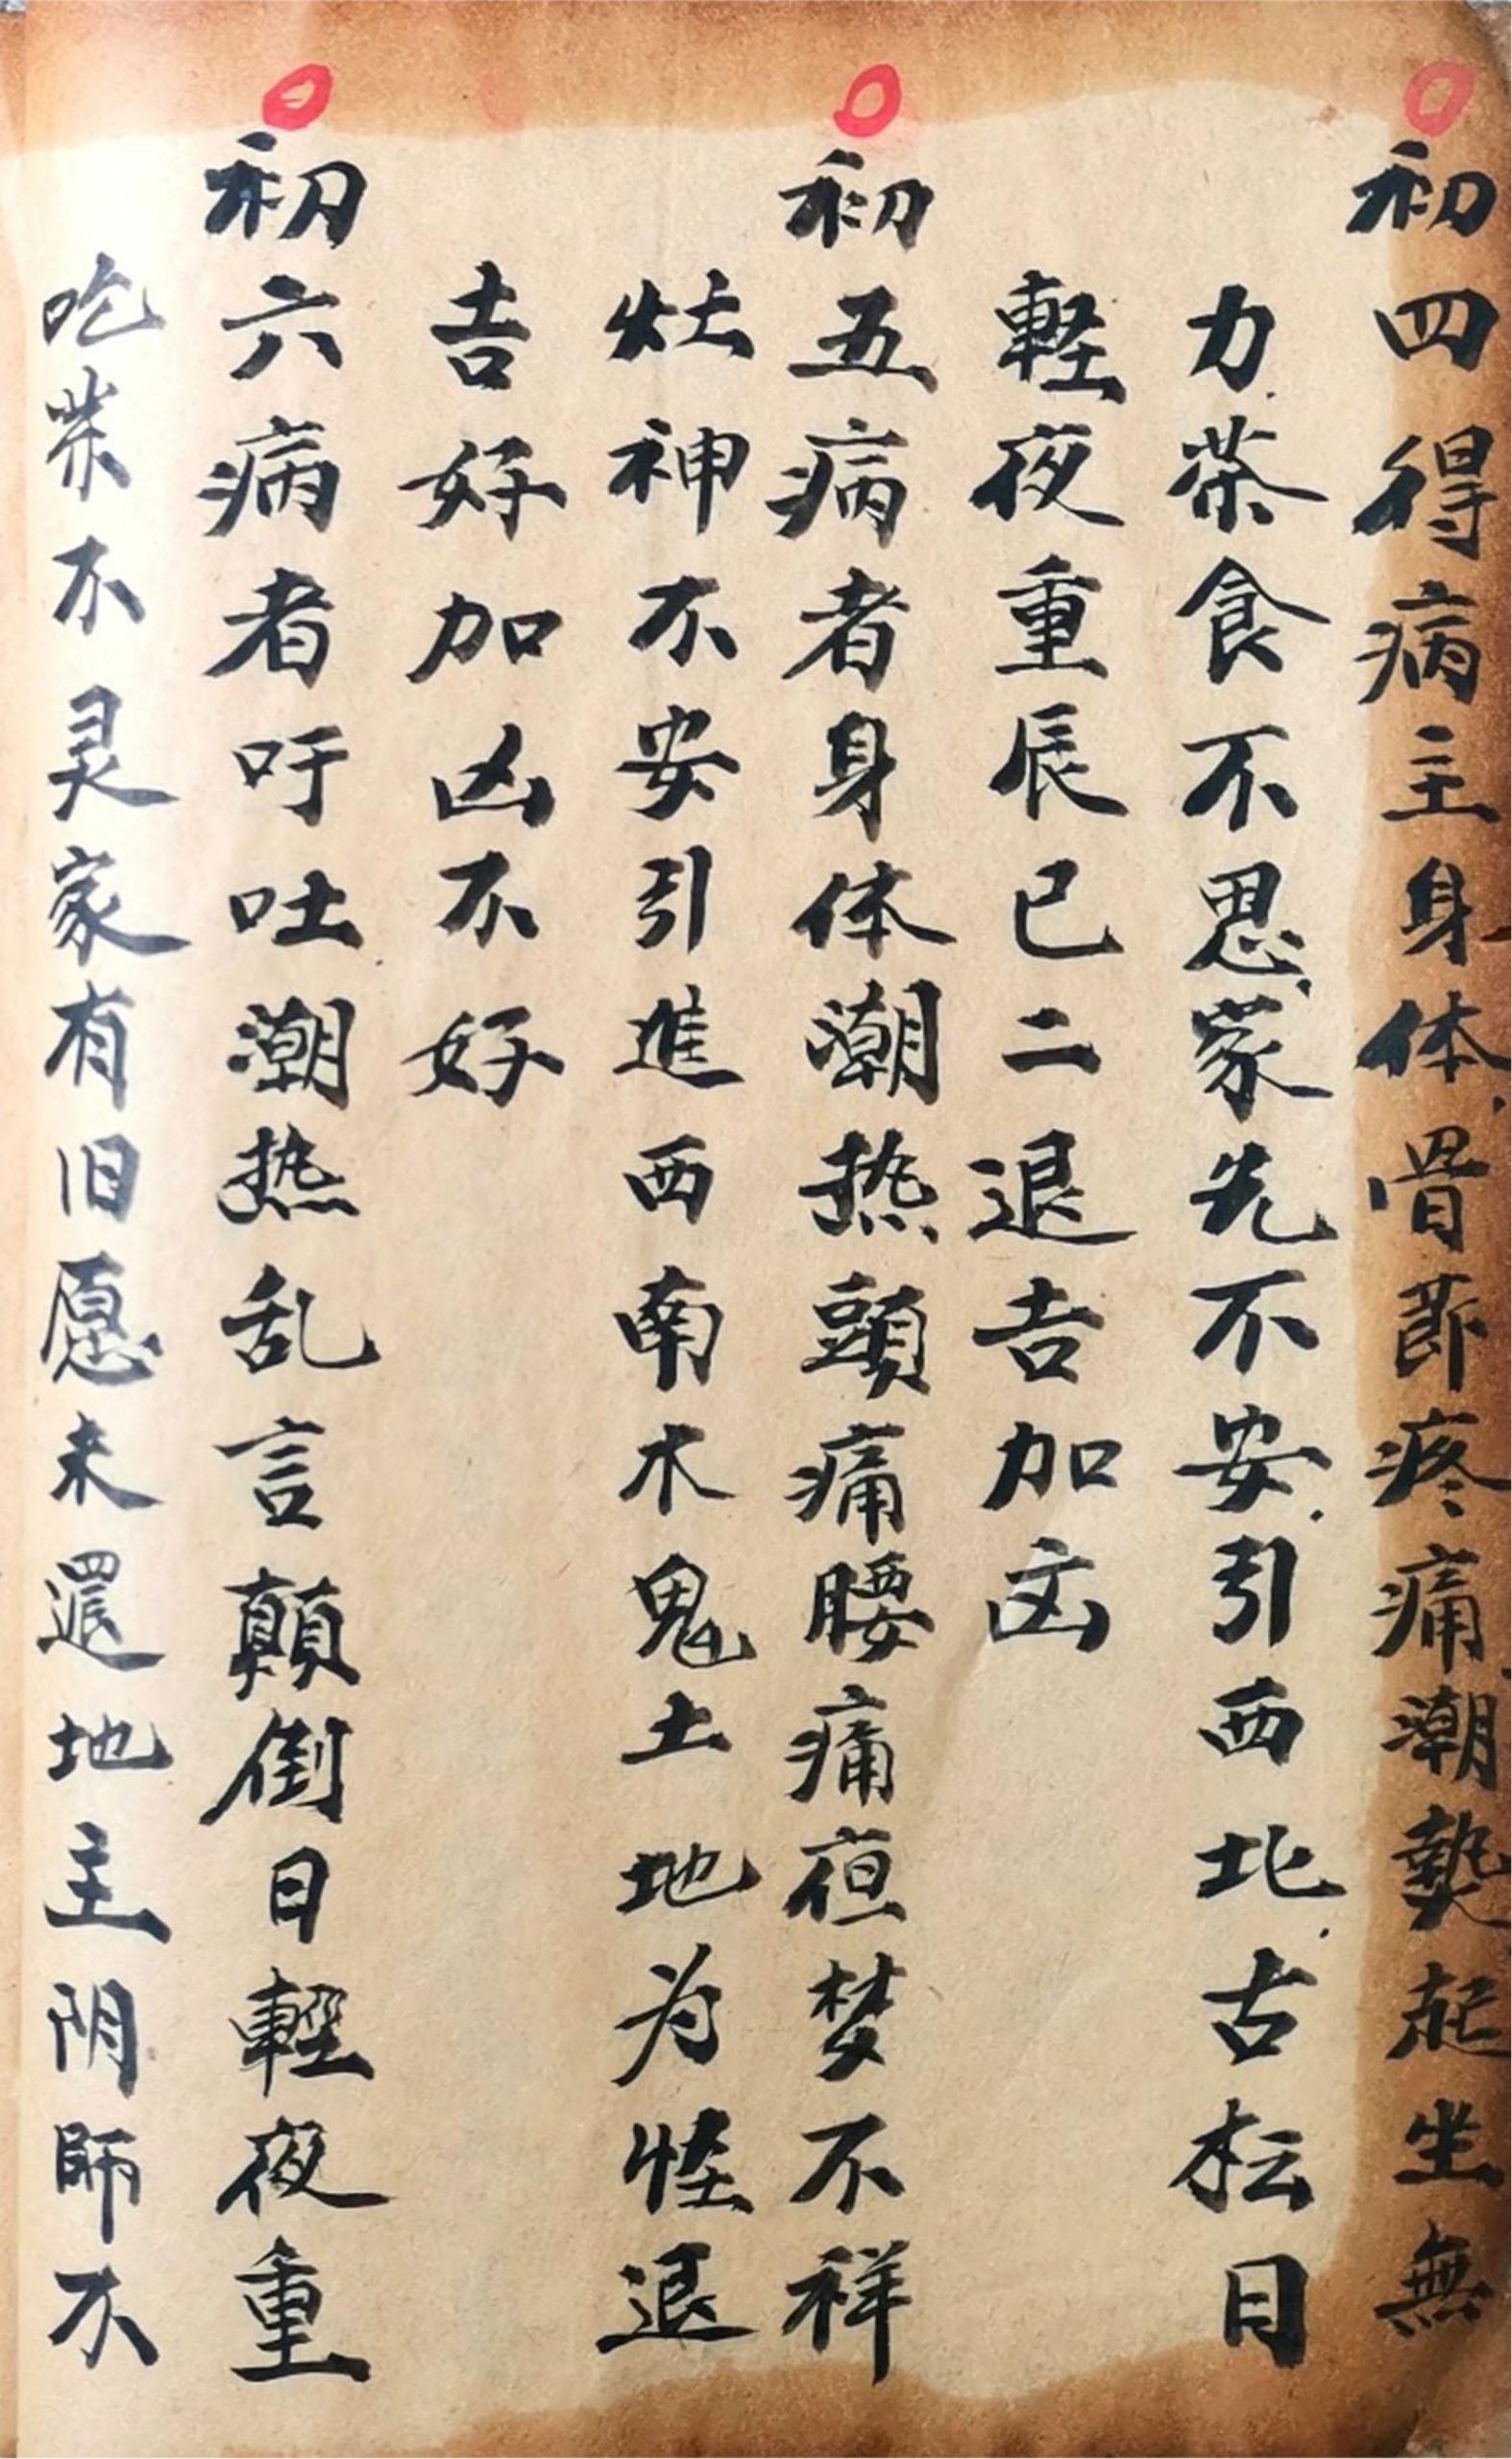 初四得病主身体骨节疼痛潮熱起坐無
力茶食不思家先不安引西北古坛日
軽夜重辰巳二退吉加凶
初五病者身体潮热頭痛腰痛夜梦不祥
灶神不安引進西南木鬼土地为怪退
吉好加凶不好
初六病者吁吐潮热乱言顛倒日輕夜重
吃茶不灵家有旧愿未還地主阴師不